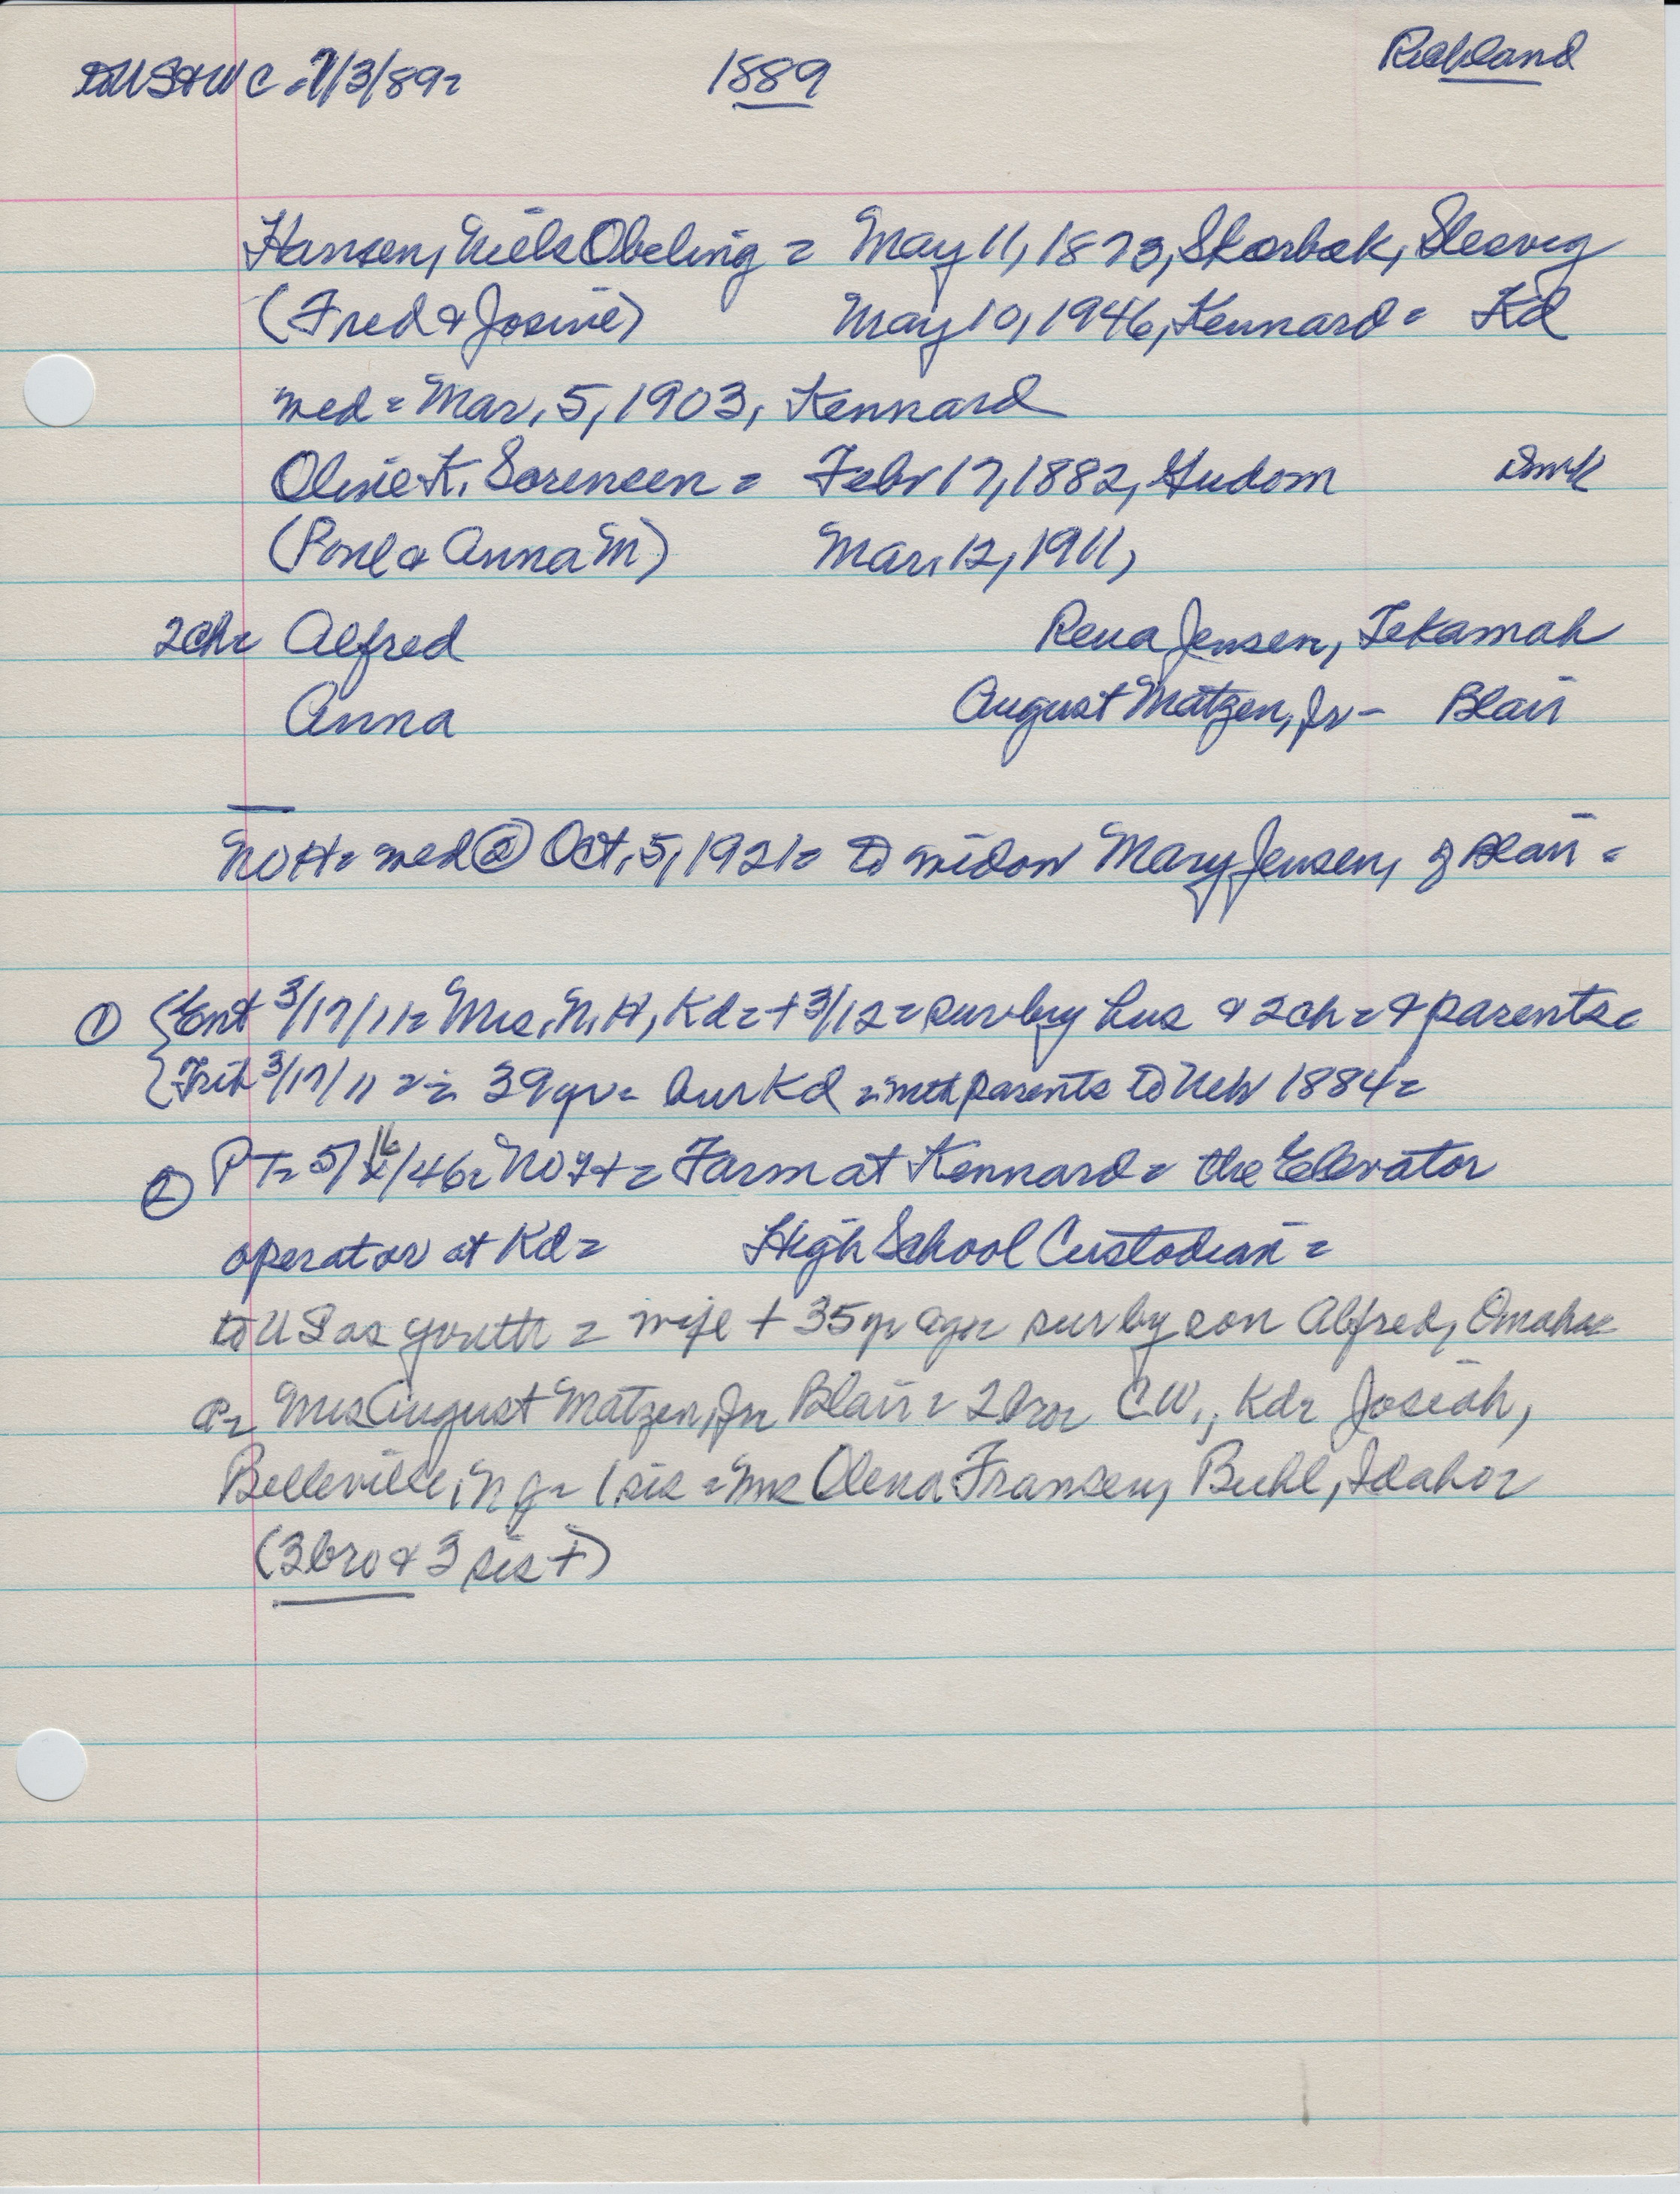 to US & W C = 7/3/89 = 1889 Richland
Hansen, Niels Obeling = May 11, 1873, Skarbak, Slesvig
(Fred & Josine) May 10, 1946, Kennard = Kd
med = Mar, 5, 1903, Kennard
Oline K. Sorensen = Febr 17, 1882, Gudom Dmk
(Poul & Anna M) Mar, 12, 1911,
2ch = Alfred Rena Jensen, Tekamah
Anna August Matzen, Jr - Blair
NOH = med ② Oct, 5, 1921 = to widow Mary Jensen, of Blair =
① {Ent 3/17/11 = Mrs, N, H, Kd = + 3/12 = sur by hus & 2ch = & parents =
{Trib 3/17/11 = 39yr = bur Kd = with parents to Neb 1884 =
② PT = 5/16/46 = = Farm at Kennard = the Elevator
operator at Kd = High School Custodian =
to US as youth = wife + 35yr ago = sur by son Alfred, Omaha =
& = Mrs August Matzen, Jr = Blair = 2bro = C W,, Kd = Josiah,
Belleville, = 1 sis = Mrs Olena Fransen, Buhl, Idaho =
(3bro & 3 sis +)